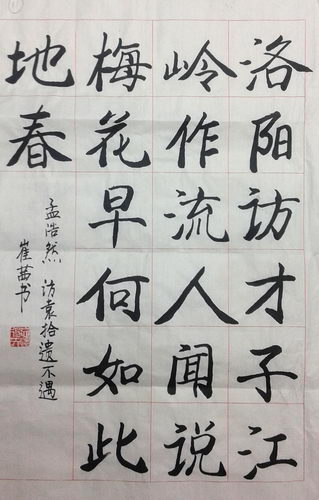 洛阳访才子江
岭作流人闻说
梅花早何如此
地春
孟浩然 访袁拾遗不遇
崔茜书